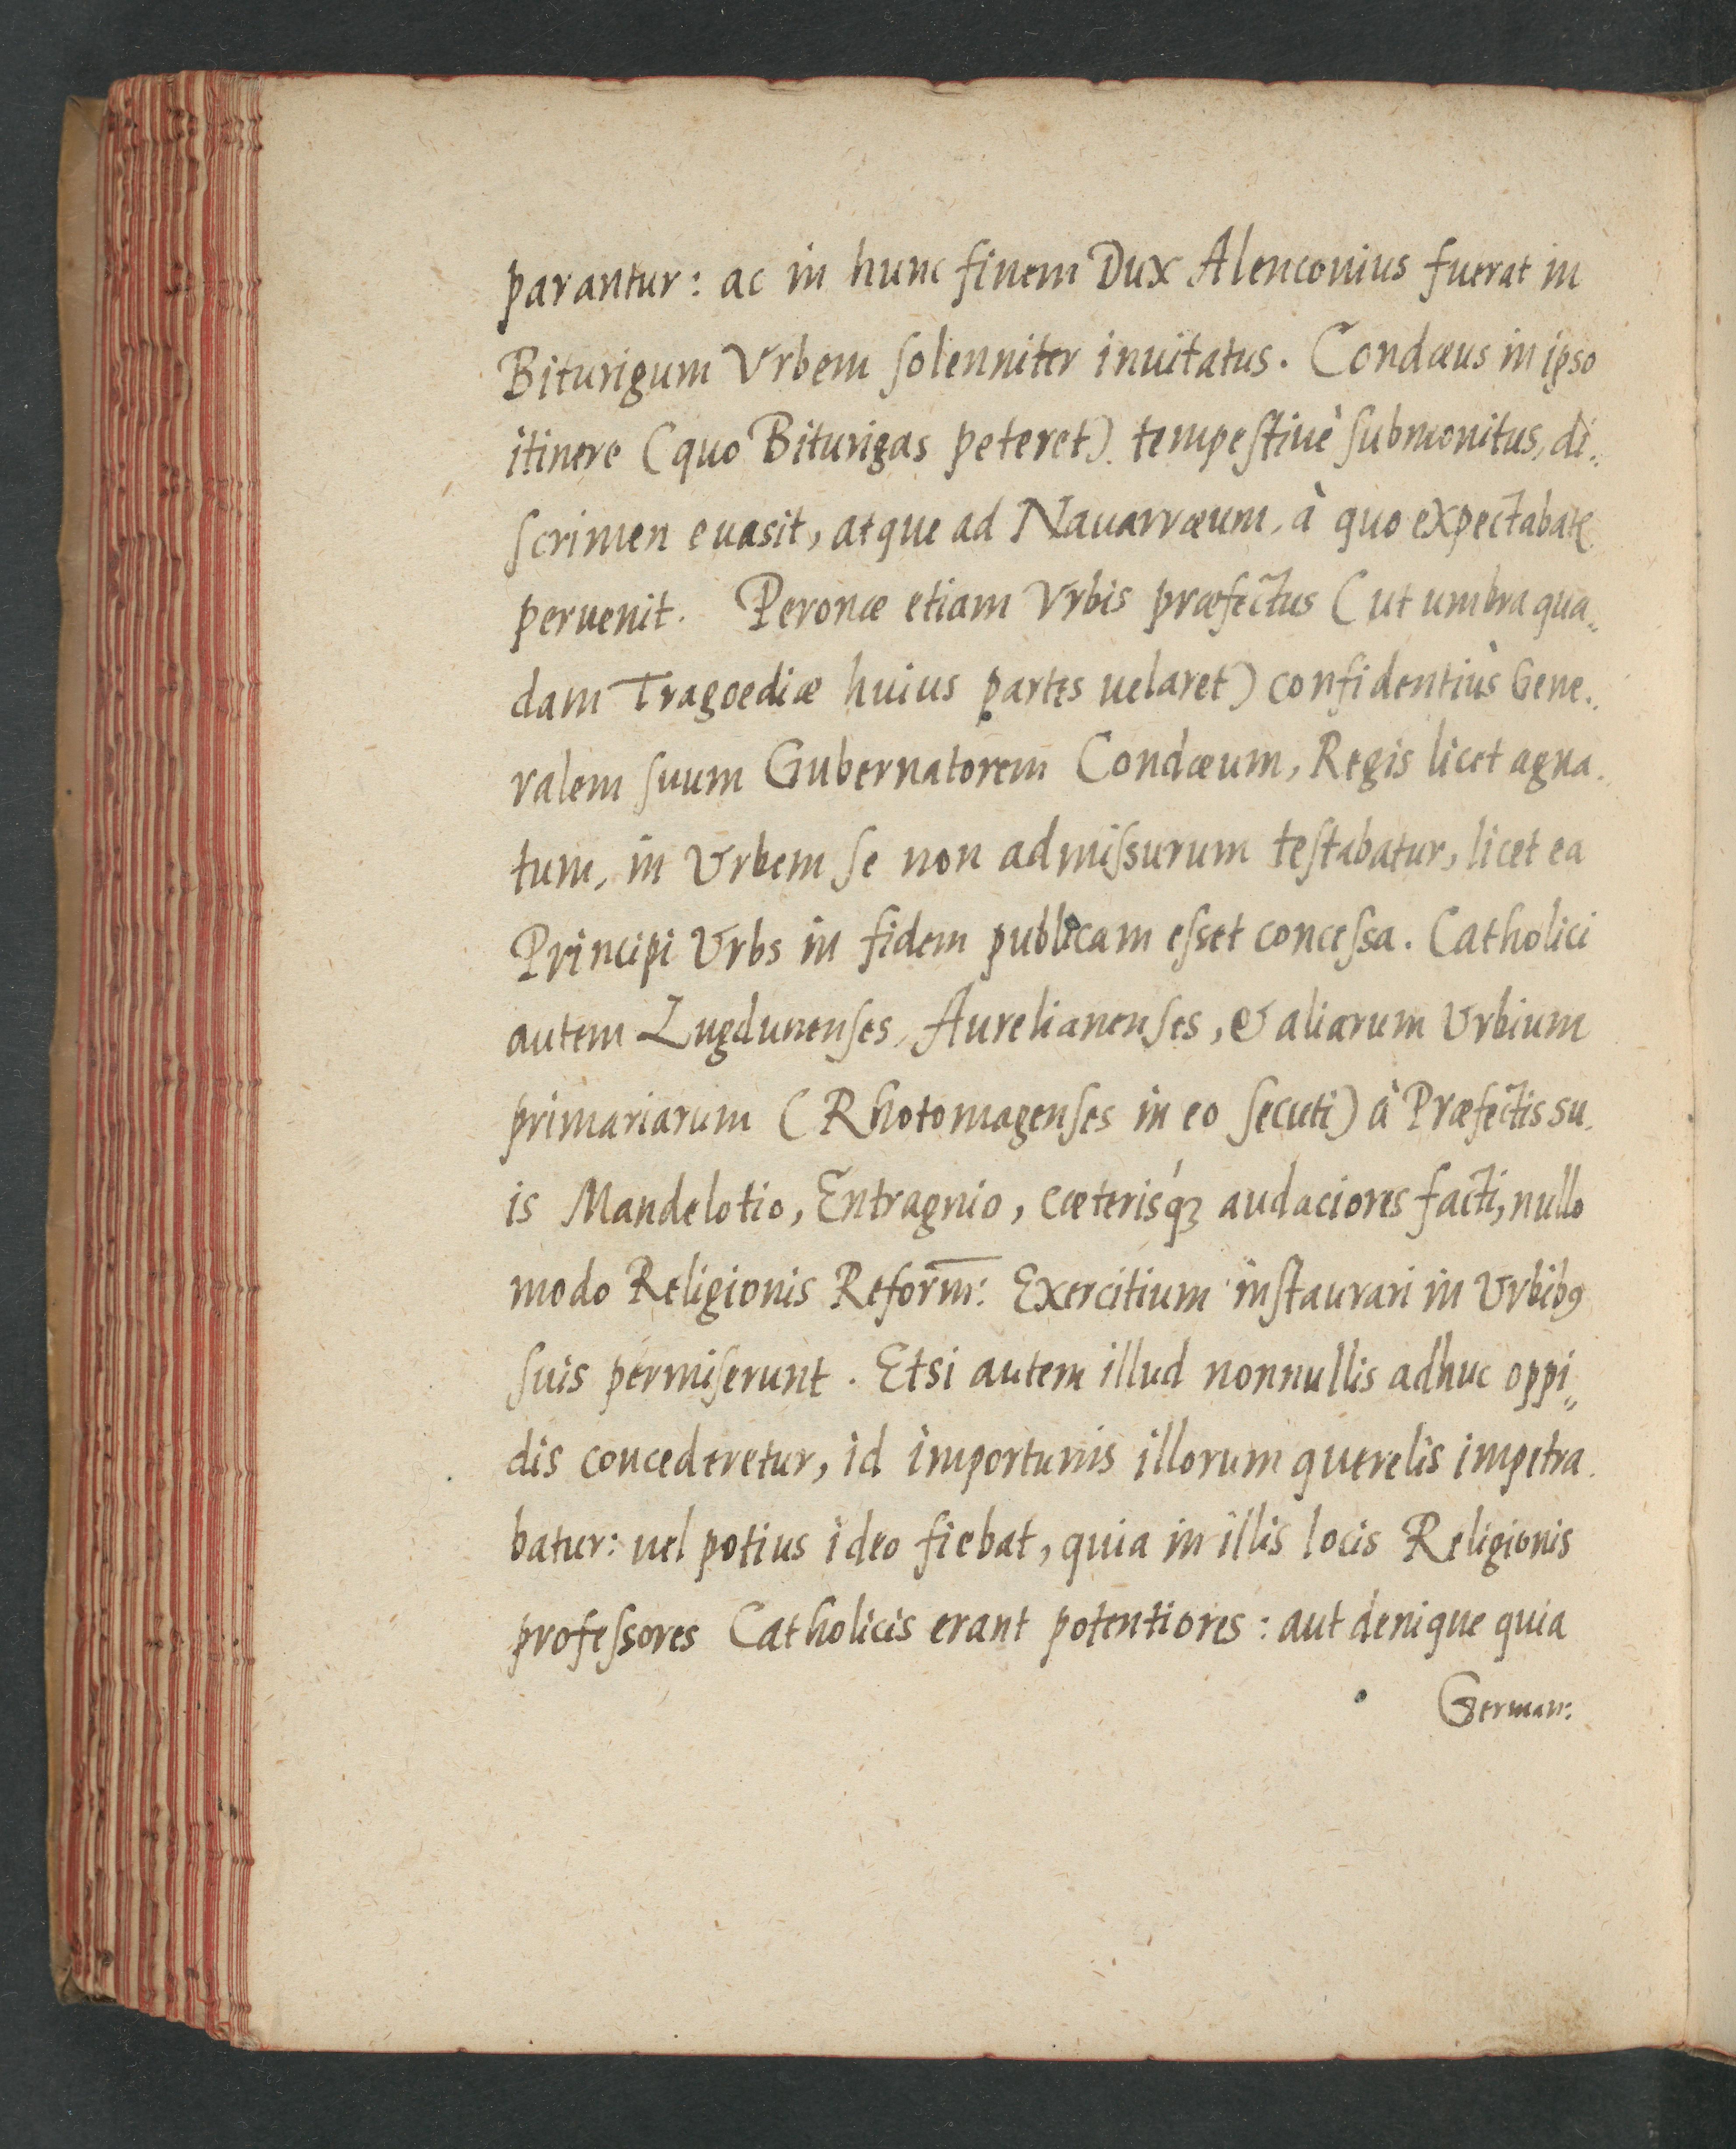 parantur: ac in hunc finem Dux Alenconius fuerat in
Biturigum Vrbem ſolenniter inuitatus. Condæus in ipso
itinere (quo Biturigas peteret) tempeſtiuè ſubmonitus, di„
ſcrimen euasit, atque ad Nauarræum, à quo expectabat᷒
peruenit. Peronæ etiam Vrbis præfectus (ut umbra qua„
dam Tragoediæ huius partes uelaret) confidentiùs Gene„
ralem ſuum Gubernatorem Condæum, Regis licet agna„
tum, in Vrbem ſe non admiſsurum teſtabatur, licet ea
Principi Vrbs in fidem publicam eſset conceſsa. Catholici
autem Lugdunenſes, Aurelianenſes, & aliarum Vrbium
primariarum (Rhotomagenſes in eo ſecuti) à Præfectis su„
is Mandelotio, Entragnio, cæterisq́ꝫ audaciores facti, nullo
modo Religionis Reform̄: Exercitium inſtaurari in Vrbibꝯ
ſuis permiſerunt. Etsi autem illud nonnullis adhuc oppi„
dis concederetur, id importunis illorum querelis impetra„
batur: uel potius ideo fiebat, quia in illis locis Religionis
profeſsores Catholicis erant potentiores: aut denique quia
German: